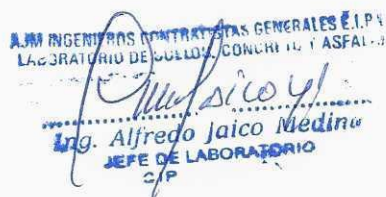 AJM INGENIEROS CONTRATISTAS GENERALES E.I.R.
LABORATORIO DE SUELOS, CONCRETO Y ASFAL
Ing. Alfredo Jaico Medina
JEFE DE LABORATORIO
CIP